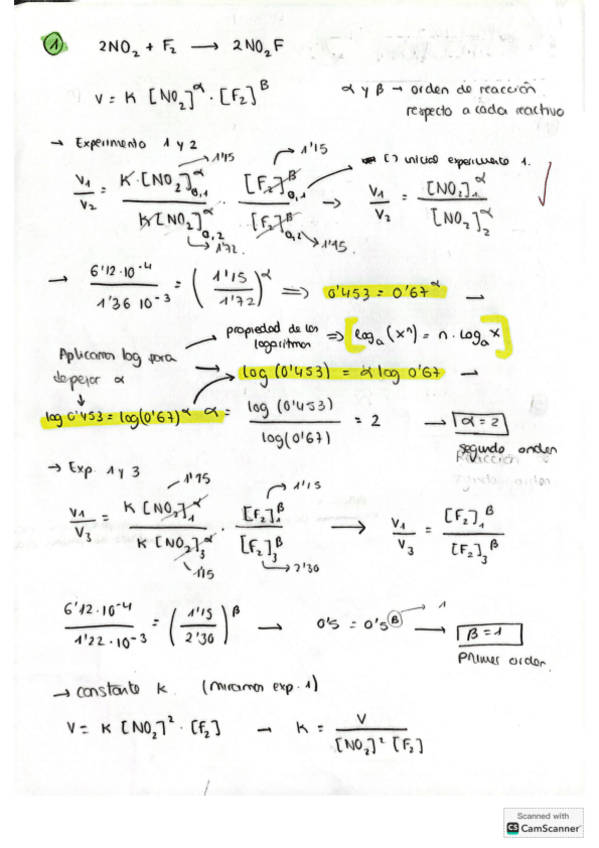 ① 2NO₂ + F₂ → 2NO₂F
V = K [NO₂]^α · [F₂]^β
α y β → orden de reacción
respecto a cada reactivo
→ Experimento 1 y 2
V₁/V₂ = K·[NO₂]^α₀,₁ / K[NO₂]^α₀,₂ · [F₂]^β₀,₁ / [F₂]^β₀,₂ → V₁/V₂ = [NO₂]₁^α / [NO₂]₂^α
→ 1'15
→ 1'15
[] inicial experimento 1.
→ 1'72
→ 1'15
→ 6'12·10⁻⁴ / 1'36 10⁻³ = (1'15 / 1'72)^α ⇒ 0'453 = 0'67^α →
Aplicamos log para
despejar α
propiedad de los
logaritmos ⇒ [logₐ(xⁿ) = n · logₐ x]
→ log (0'453) = α log 0'67 →
log 0'453 = log(0'67)^α
α = log (0'453) / log(0'67) = 2 → α = 2
segundo orden
→ Exp. 1 y 3
V₁/V₃ = K [NO₂]₁^α / K [NO₂]₃^α · [F₂]₁^β / [F₂]₃^β → V₁/V₃ = [F₂]₁^β / [F₂]₃^β
→ 1'15
→ 1'15
1'15
→ 2'30
6'12·10⁻⁴ / 1'22·10⁻³ = (1'15 / 2'30)^β → 0'5 = 0'5^β → β = 1
→ 1
Primer orden.
→ constante k. (miramos exp. 1)
V = K [NO₂]² · [F₂] → K = V / [NO₂]² [F₂]
Scanned with
CS CamScanner